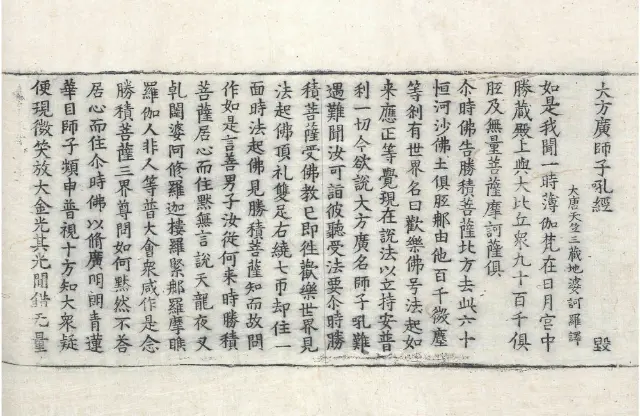 大方廣師子吼經 毀
大唐天竺三藏地婆訶羅譯
如是我聞一時薄伽梵在日月宮中
勝藏殿上與大比丘衆九十百千俱
胝及無量菩薩摩訶薩俱
尒時佛告勝積菩薩北方去此六十
恒河沙佛土俱胝那由他百千微塵
等剎有世界名曰歡樂佛号法起如
來應正等覺現在說法以立持安普
利一切今欲說大方廣名師子吼難
遇難聞汝可詣彼聽受法要尒時勝
積菩薩受佛教已即往歡樂世界見
法起佛頂礼雙足右繞七帀却住一
面時法起佛見勝積菩薩知而故問
作如是言善男子汝從何来時勝積
菩薩居心而住黙無言說天龍夜叉
乹闥婆阿修羅迦樓羅緊那羅摩睺
羅伽人非人等普大會衆咸作是念
勝積菩薩三界尊問如何黙然不荅
居心而住尒時佛以脩廣明朗青蓮
華目師子頻申普視十方知大衆疑
便現微笑放大金光其光開錯无量